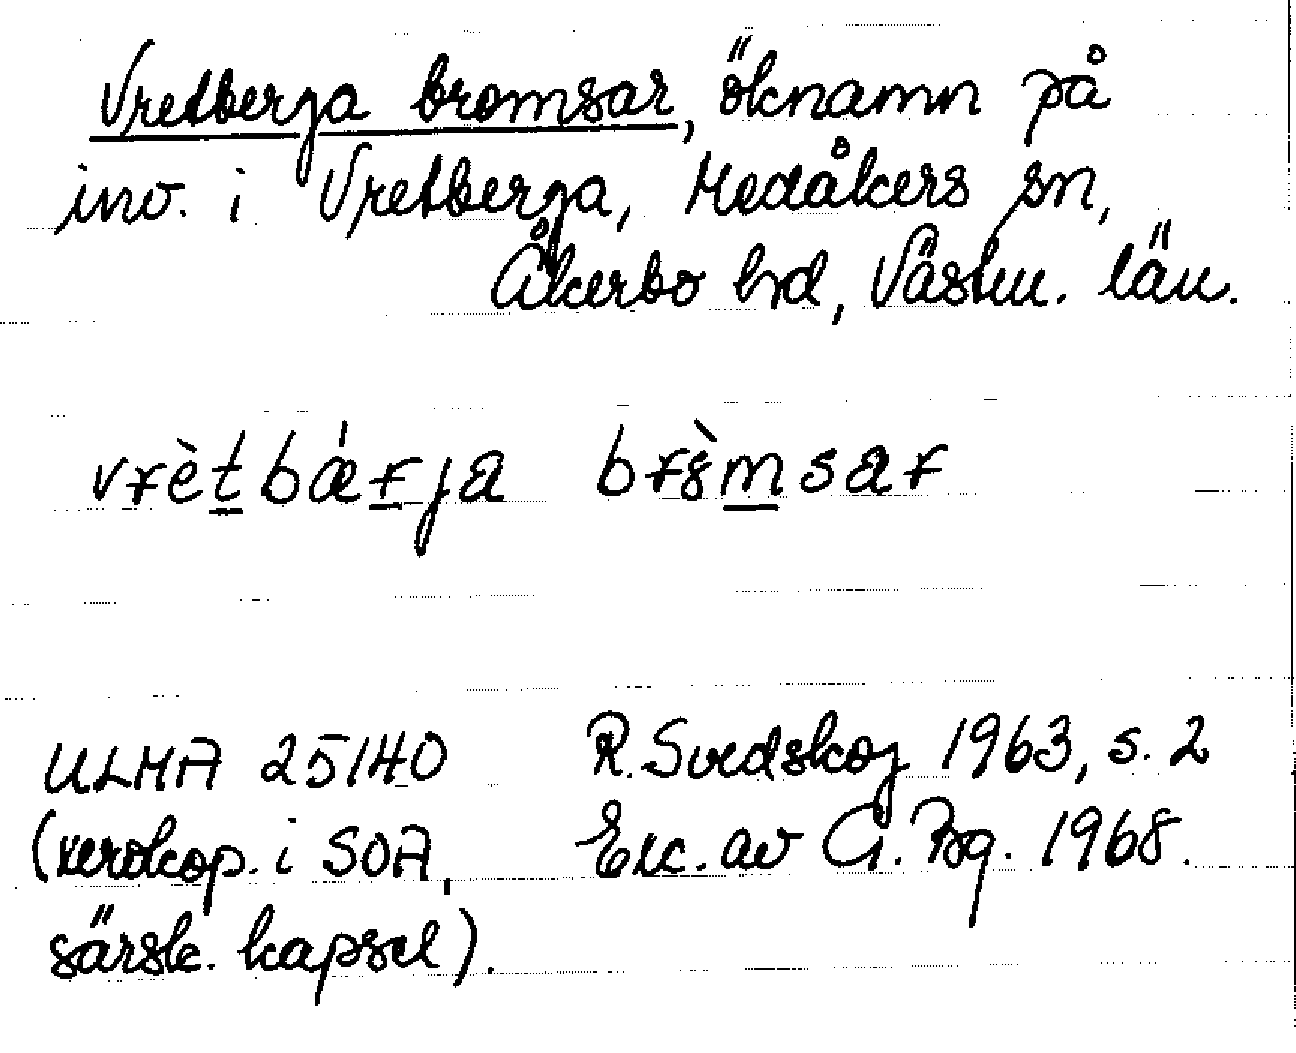 Vretberga bromsar, öknamn på
inv. i Vretberga, Medåkers sn,
Åkerbo hd, Västm. län.
vrètbǽrja bròmsar
ULMA 25140 R. Svedskog 1963, s. 2
(xerokop. i SOA, Exc. av G. Bg. 1968.
särsk. kapsel).